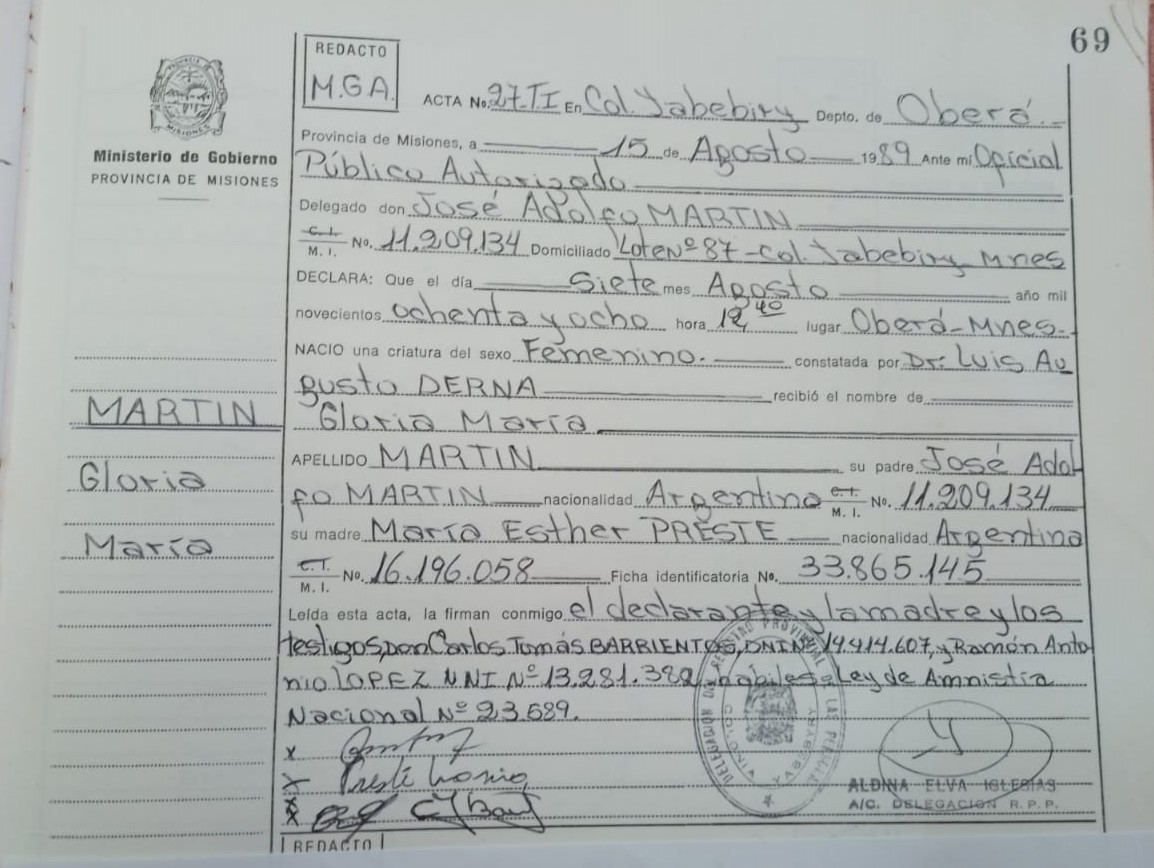 69
REDACTO
M.G.A.
PROVINCIA DE
MISIONES
Ministerio de Gobierno
PROVINCIA DE MISIONES
ACTA No. 27-TI En Col. Yabebiry Depto. de Oberá.-
Provincia de Misiones, a 15 de Agosto 1989 Ante mí Oficial
Público Autorizado
Delegado don José Adolfo MARTIN
C. I.
M. I. No. 11.209.134 Domiciliado Lote Nº 87 - Col. Yabebiry Mnes
DECLARA: Que el día Siete mes Agosto año mil
novecientos ochenta y ocho hora 12,40 lugar Oberá-Mnes.-
NACIO una criatura del sexo Femenino.- constatada por Dr. Luis Au
gusto DERNA recibió el nombre de
Gloria María
APELLIDO MARTIN su padre José Adol
fo MARTIN nacionalidad Argentino C. I.
M. I. No. 11.209.134
su madre María Esther PRESTE nacionalidad Argentina
C. I.
M. I. No. 16.196.058 Ficha identificatoria No. 33.865.145
Leída esta acta, la firman conmigo el declarante y la madre y los
testigos, don Carlos Tomás BARRIENTOS, DNI Nº 14.414.607, y Ramón Anto
nio LOPEZ DNI Nº 13.281.382, hábiles - Ley de Amnistía
Nacional Nº 23.589.
MARTIN
Gloria
María
x
x Preste
x
x
DELEGACIÓN DEL REGISTRO PROVINCIAL DE LAS PERSONAS
COLONIA YABEBYRY
ALDINA ELVA IGLESIAS
A/C. DELEGACION R. P. P.
REDACTO